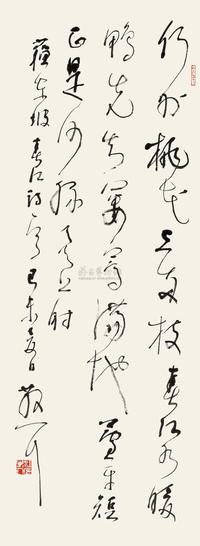 竹外桃花三两枝春江水暖
鸭先知蒌蒿满地芦芽短
正是河豚欲上时
蘇东坡春江诗 己未夏日 散耳